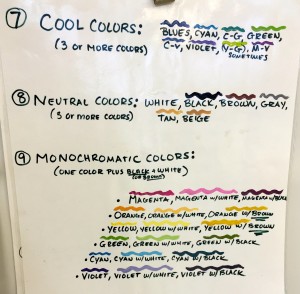 ⑦ COOL COLORS:
(3 OR MORE COLORS)
BLUES, CYAN, C-G, GREEN,
C-V, VIOLET, (Y-G), M-V
SOMETIMES
⑧ NEUTRAL COLORS: WHITE, BLACK, BROWN, GRAY,
(3 OR MORE COLORS) TAN, BEIGE
⑨ MONOCHROMATIC COLORS:
(ONE COLOR PLUS BLACK & WHITE)
(OR BROWN)
• MAGENTA, MAGENTA W/WHITE, MAGENTA W/BLACK
• ORANGE, ORANGE W/WHITE, ORANGE W/BROWN
• YELLOW, YELLOW W/WHITE, YELLOW W/BROWN
• GREEN, GREEN W/WHITE, GREEN W/BLACK
• CYAN, CYAN W/WHITE, CYAN W/BLACK
• VIOLET, VIOLET W/WHITE, VIOLET W/BLACK